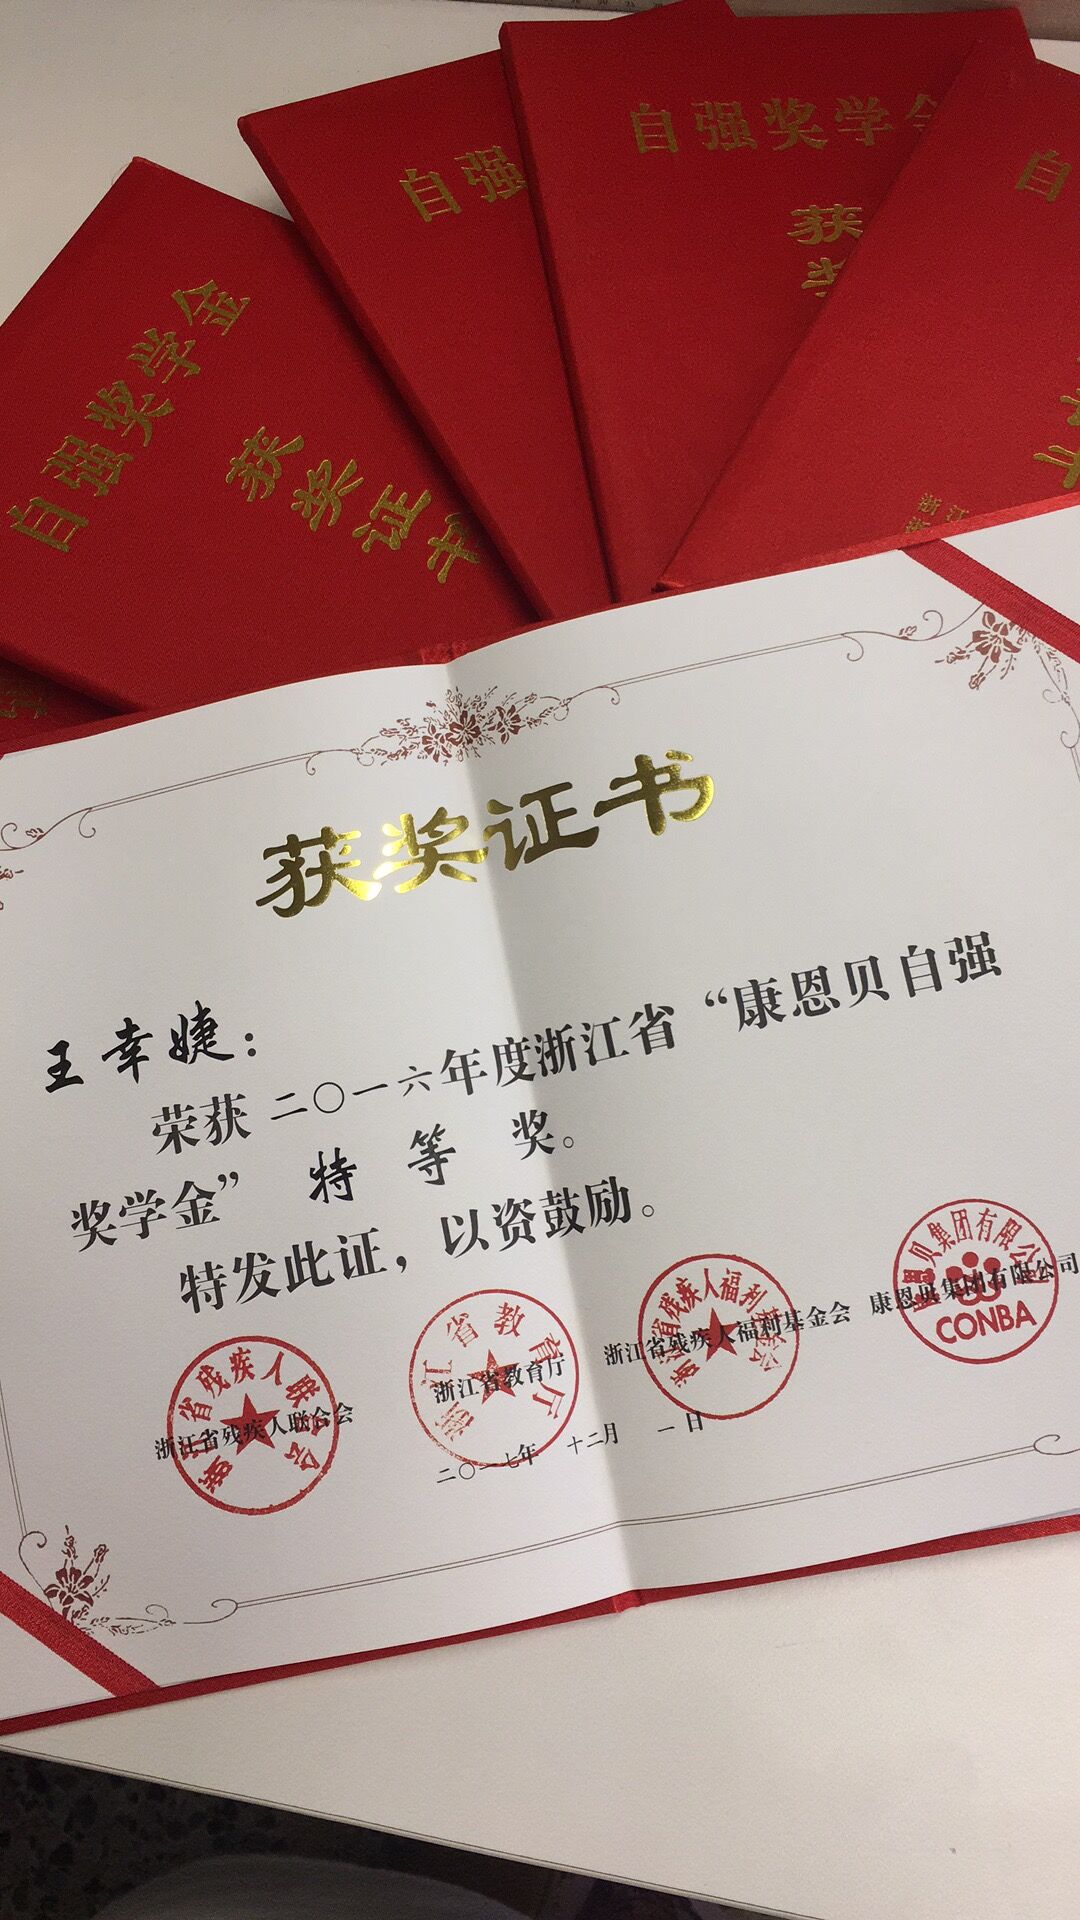 自强奖学金
获奖证书
自强
自强奖学金
获奖
自
浙江
获奖证书
王幸婕：
荣获二〇一六年度浙江省“康恩贝自强
奖学金” 特 等 奖。
特发此证，以资鼓励。
浙江省残疾人联合会
浙江省残疾人联合会
浙江省教育厅
浙江省教育厅
浙江省残疾人福利基金会
浙江省残疾人福利基金会
康恩贝集团有限公司
贝集团有限公司
CONBA
二〇一七年 十二月 一日